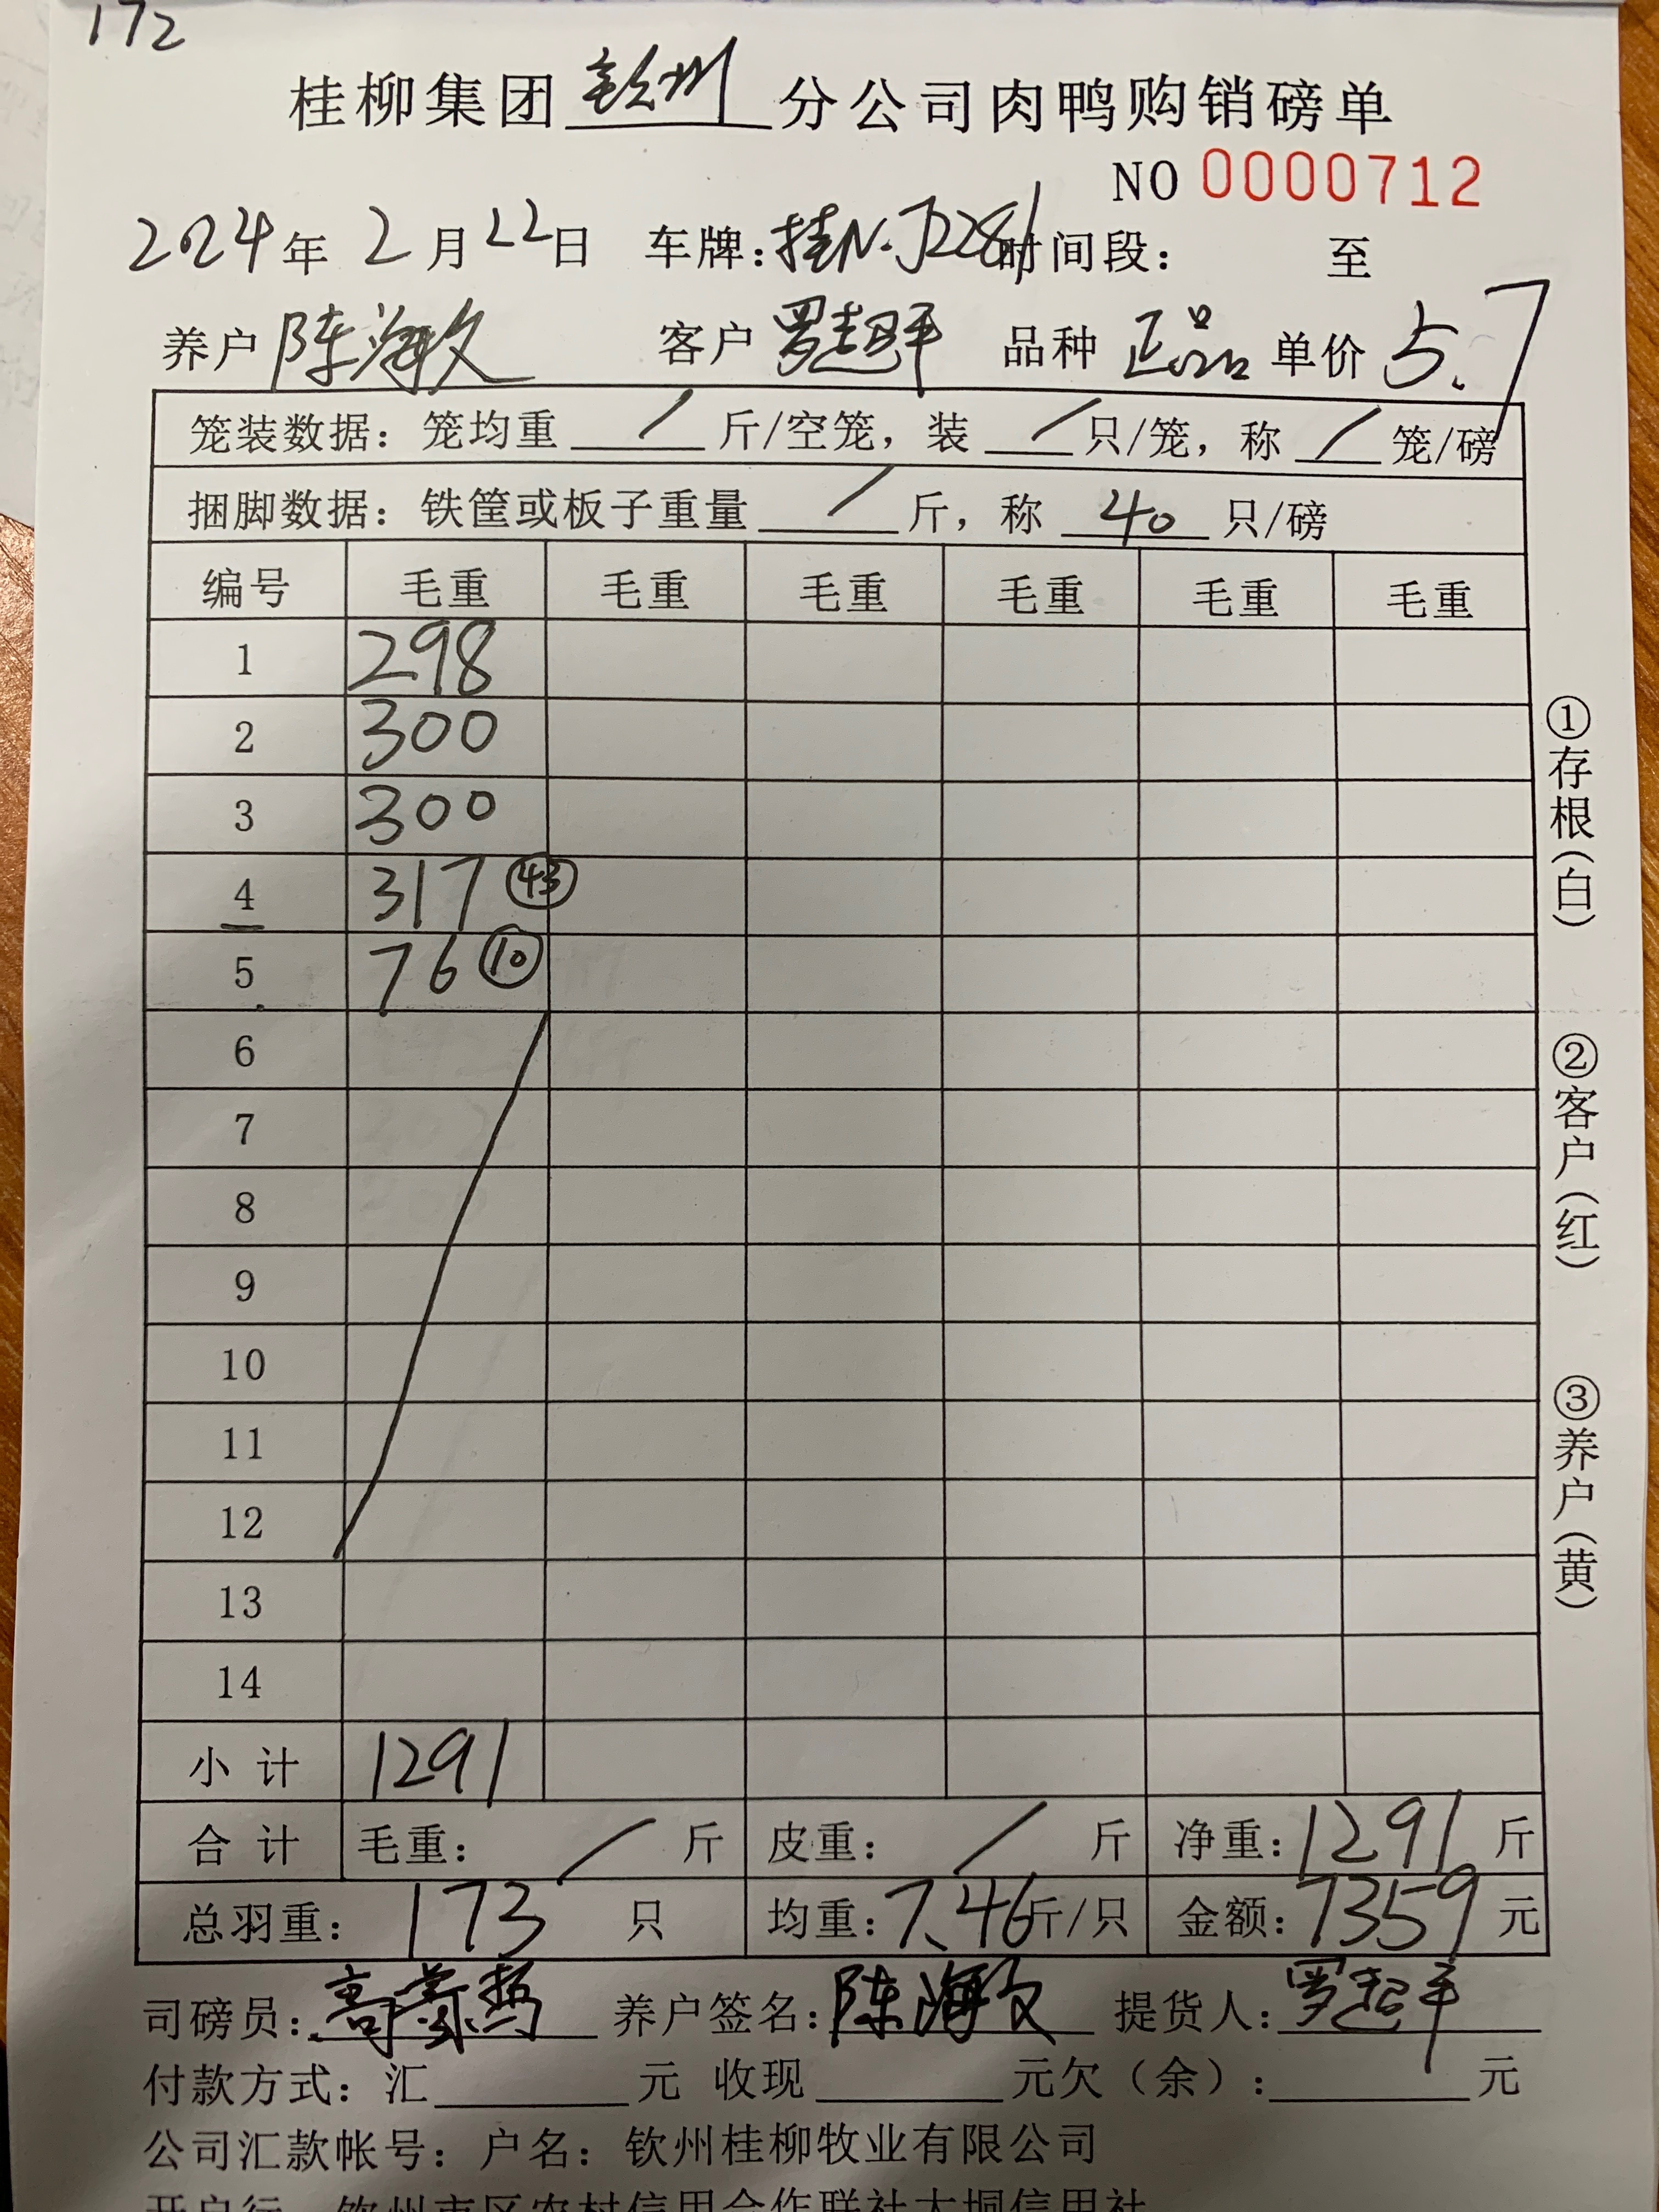 172
桂柳集团钦州分公司肉鸭购销磅单
NO 0000712
2024年 2月 22日 车牌:桂N·J2281 时间段: 至
养户 陈海文 客户 罗超平 品种 正品 单价 5.7
笼装数据: 笼均重 / 斤/空笼, 装 / 只/笼, 称 / 笼/磅
捆脚数据: 铁筐或板子重量 / 斤, 称 40 只/磅
编号 毛重 毛重 毛重 毛重 毛重 毛重
1 298
2 300
3 300
4 317 43
5 76 10
6
7
8
9
10
11
12
13
14
小计 1291
合计 毛重: / 斤 皮重: / 斤 净重: 1291 斤
总羽重: 173 只 均重: 7.46 斤/只 金额: 7359 元
司磅员: 养户签名: 陈海文 提货人: 罗超平
付款方式: 汇 元 收现 元欠(余): 元
公司汇款帐号: 户名: 钦州桂柳牧业有限公司
开户行 钦州市区农村信用合作联社大垌信用社
①存根(白)
②客户(红)
③养户(黄)